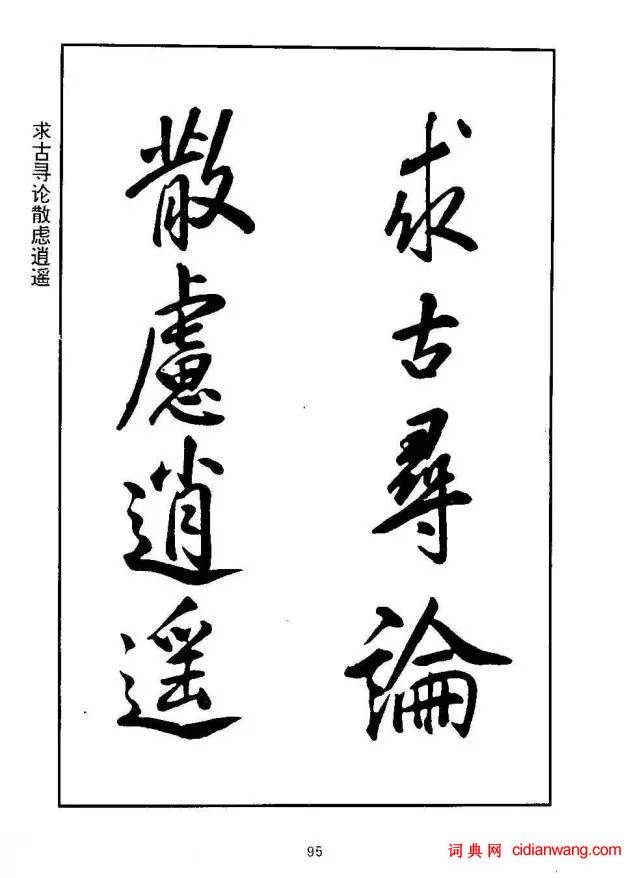 求古尋論
散慮逍遥
求古寻论散虑逍遥
95
词典网 cidianwang.com